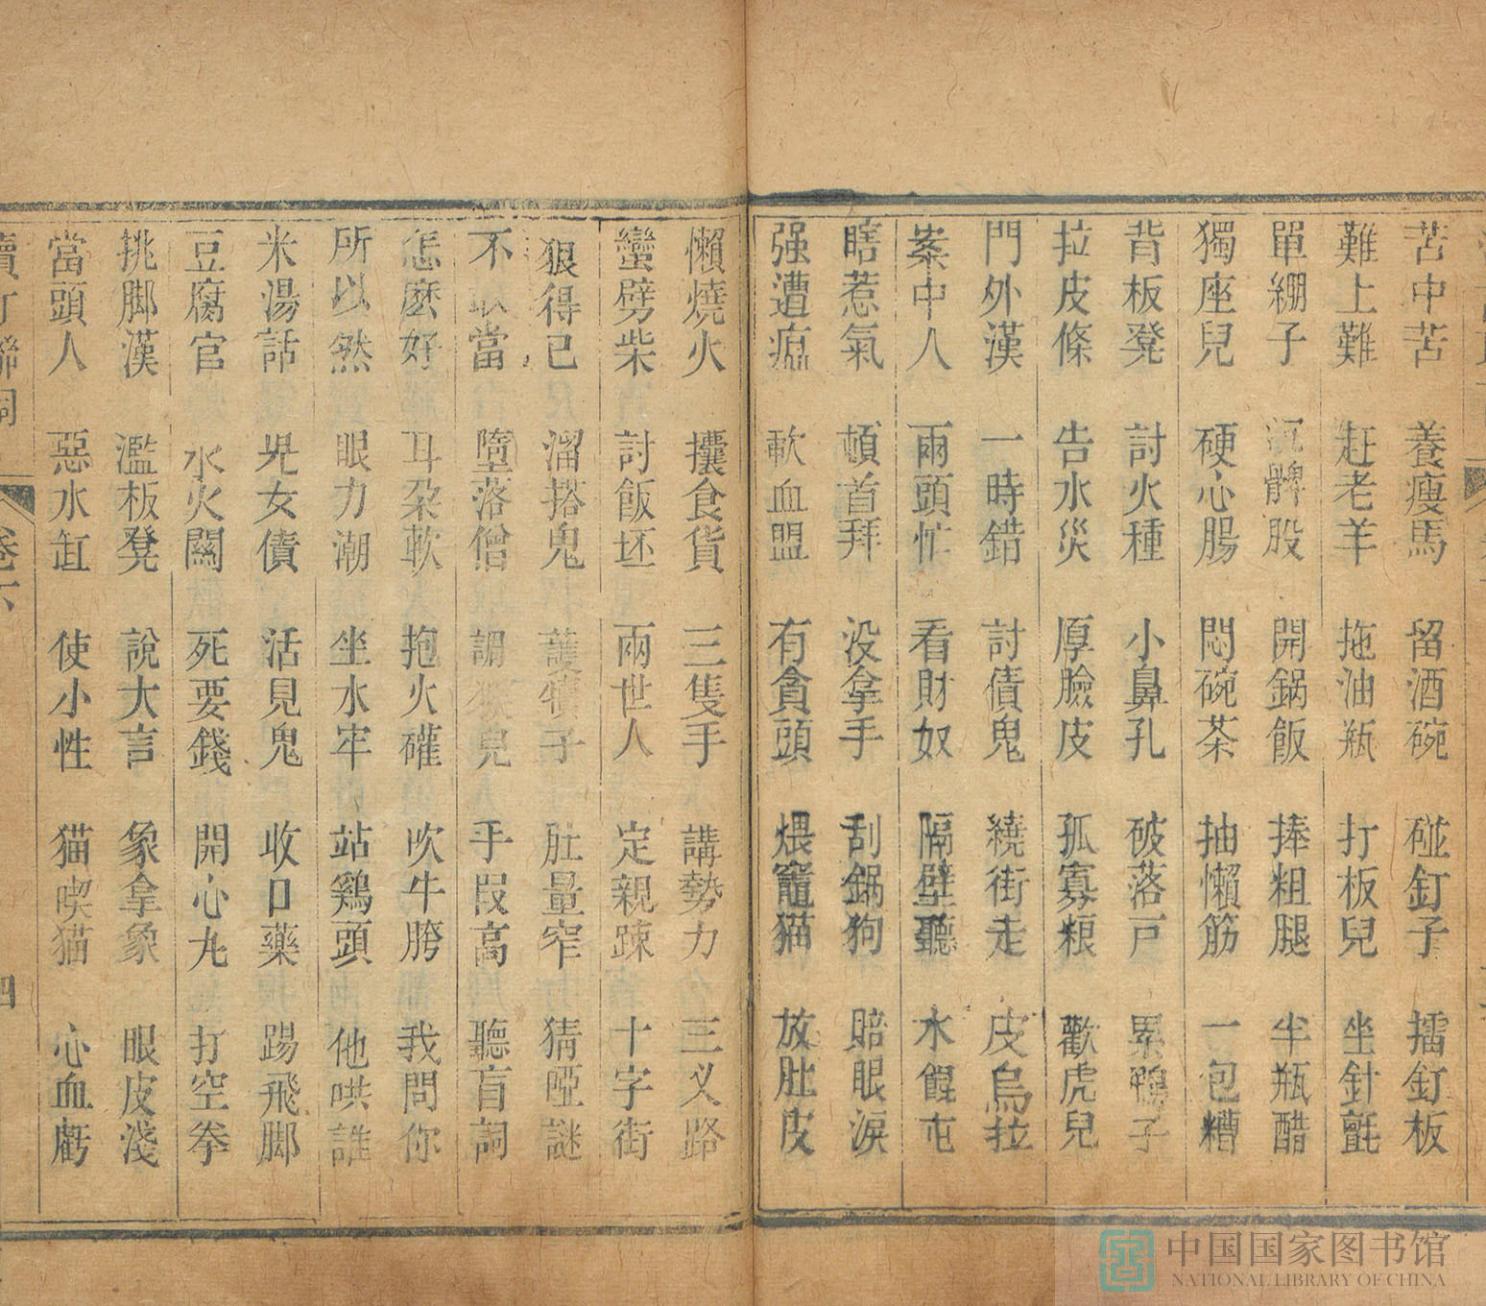 苦中苦 養瘦馬 留酒碗 碰釘子 擂釘板
難上難 赶老羊 拖油瓶 打板兒 坐針氈
單綳子 沉髀股 開鍋飯 捧粗腿 半瓶醋
獨座兒 硬心腸 悶碗茶 抽懶筋 一包糟
背板凳 討火種 小鼻孔 破落戶 累鴨子
拉皮條 告水災 厚臉皮 孤寡粮 歡虎兒
門外漢 一時錯 討債鬼 繞街走 皮烏拉
案中人 兩頭忙 看財奴 隔壁聽 水餛屯
瞎惹氣 頓首拜 没拿手 刮鍋狗 賠眼淚
强遭瘟 軟血盟 有貪頭 煨竈猫 放肚皮
懶燒火 攮食貨 三隻手 講勢力 三义路
蠻劈柴 討飯坯 兩世人 定親踈 十字街
狠得已 溜搭鬼 護犢子 肚量窄 猜啞謎
不 當 墮落僧 調猴兒 手叚高 聽盲詞
怎麽好 耳朶軟 抱火礶 吹牛胯 我問你
所以然 眼力潮 坐水牢 站鷄頭 他哄誰
米湯話 兒女債 活見鬼 收口藥 踢飛脚
豆腐官 水火關 死要錢 開心丸 打空拳
挑脚漢 濫板凳 說大言 象拿象 眼皮淺
當頭人 惡水缸 使小性 猫喫猫 心血虧
卷六
四
中国国家图书馆
NATIONAL LIBRARY OF CHINA